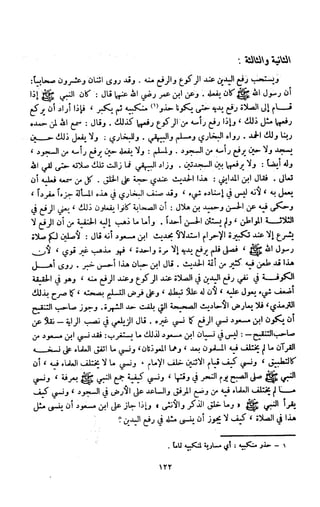 الثانية والثالثة :
ويستحب رفع اليدين عند الركوع والرفع منه . وقد روى اثنان وعشرون صحابياً:
أن رسول الله ﷺ كان يفعله . وعن ابن عمر رضي الله عنهما قال : كان النبي ﷺ إذا
قام إلى الصلاة رفع يديه حتى يكونا حذو (١) منكبيه ثم يكبر ، فإذا أراد أن يركع
رفعهما مثل ذلك ، وإذا رفع رأسه من الركوع رفعهما كذلك . وقال : سمع الله لمن حمده
ربنا ولك الحمد . رواه البخاري ومسلم والبيهقي . وللبخاري : ولا يفعل ذلك حين
يسجد ولا حين يرفع رأسه من السجود . ولمسلم : ولا يفعله حين يرفع رأسه من السجود ،
وله أيضاً : ولا يرفعهما بين السجدتين . وزاد البيهقي فما زالت تلك صلاته حتى لقي الله
تعالى . فقال ابن المديني : هذا الحديث عندي حجة على الخلق . كل من سمعه فعليه أن
يعمل به ، لأنه ليس في إسناده شيء ، وقد صنف البخاري في هذه المسألة جزءاً مفرداً ،
وحكى فيه عن الحسن وحميد بن هلال : أن الصحابة كانوا يفعلون ذلك ، يعني الرفع في
الثلاثة المواطن ، ولم يستثن الحسن أحداً . وأما ما ذهب إليه الحنفية من أن الرفع لا
يشرع إلا عند تكبيرة الإحرام استدلالاً بحديث ابن مسعود أنه قال : لأصلين لكم صلاة
رسول الله ﷺ ، فصلى فلم يرفع يديه إلا مرة واحدة ، فهو مذهب غير قوي ، لأن
هذا قد طعن فيه كثير من أئمة الحديث . قال ابن حبان هذا أحسن خبر . روى أهل
الكوفة في نفي رفع اليدين في الصلاة عند الركوع وعند الرفع منه ، وهو في الحقيقة
أضعف شيء يعول عليه ، لأن له عللاً تبطله ، وعلى فرض التسليم بصحته ، كما صرح بذلك
الترمذي، فلا يعارض الأحاديث الصحيحة التي بلغت حد الشهرة. وجوز صاحب التنقيح
أن يكون ابن مسعود نسي الرفع كما نسي غيره . قال الزيلعي في نصب الراية – نقلاً عن
صاحب التنقيح – : ليس في نسيان ابن مسعود لذلك ما يستغرب: فقد نسي ابن مسعود من
القرآن ما لم يختلف فيه المسلمون بعد ، وهما المعوذتان ، ونسي ما اتفق العلماء على نسخه
كالتطبيق ، ونسي كيف قيام الاثنين خلف الإمام ، ونسي ما لا يختلف العلماء فيه ، أن
النبي ﷺ صلى الصبح يوم النحر في وقتها ، ونسي كيفية جمع النبي ﷺ بعرفة ، ونسي
ما لم يختلف العلماء فيه من وضع المرفق والساعد على الأرض في السجود ، ونسي كيف
يقرأ النبي ﷺ ﴿ وما خلق الذكر والأنثى ﴾ وإذا جاز على ابن مسعود أن ينسى مثل
هذا في الصلاة ، كيف لا يجوز أن ينسى مثله في رفع اليدين ؟
١ – حذو منكبيه : أي مساوية لمنكبيه تماماً .
١٢٢